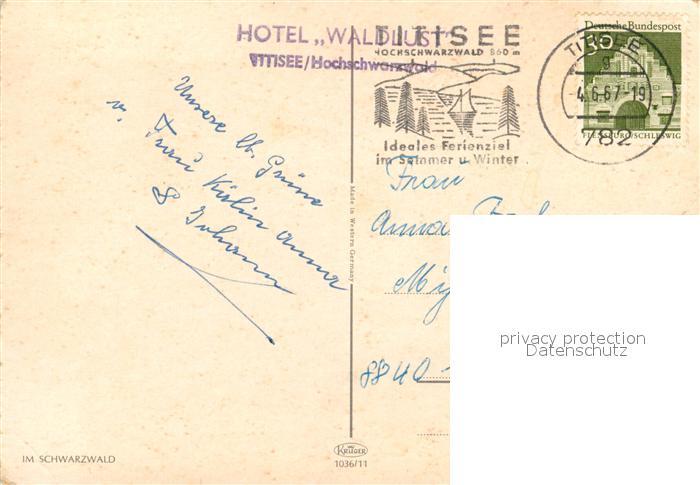 HOTEL „WALDLUST"
TITISEE/Hochschwarzwald
TITISEE
HOCHSCHWARZWALD 860 m
Ideales Ferienziel
im Sommer u. Winter
TITISEE
g
-4.6.67-19
782
Deutsche Bundespost
30
FLENSBURG/SCHLESWIG
Unsere lb. Grüße
v.
Frau Anna
& Johann
Frau
Anna
8840
Made in Western Germany
privacy protection
Datenschutz
KRÜGER
1036/11
IM SCHWARZWALD